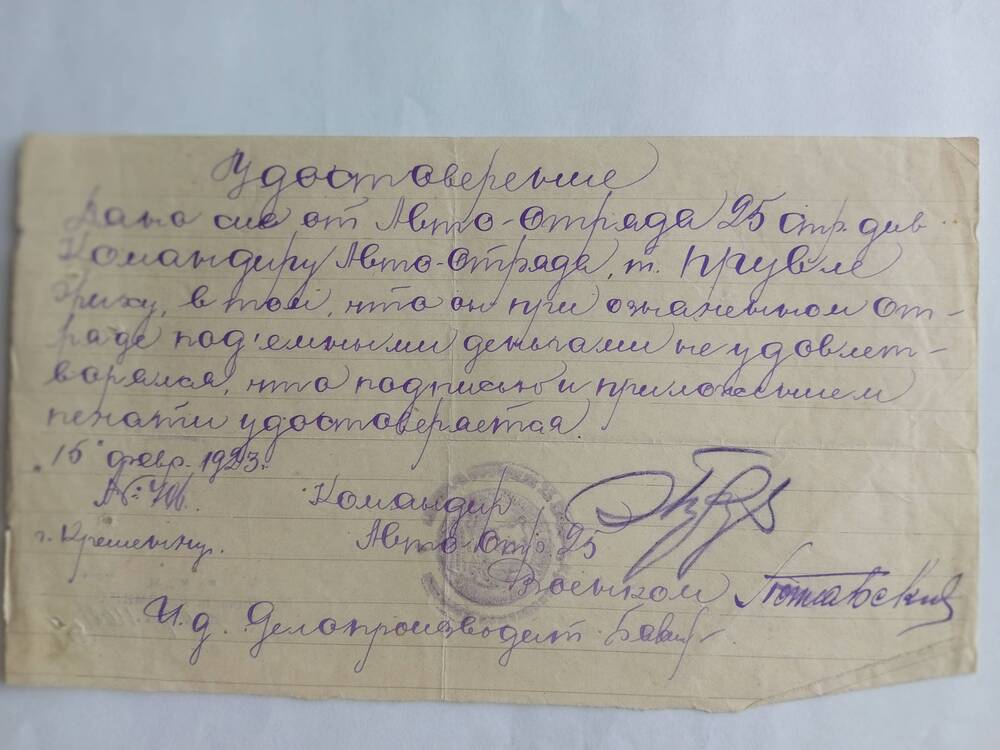 Удостоверение
Дано сие от Авто-Отряда 25 стр. див.
Командиру Авто-Отряда, т. Прувле
Эриху, в том, что он при означенном От-
ряде под'емными деньгами не удовлет-
ворялся, что подписью и приложением
печати удостоверяется.
"15" февр. 1923 г.
№ 406.
Командир
г. Кременчуг.
Авто-Отр. 25
Военком
И.д. Делопроизводит.